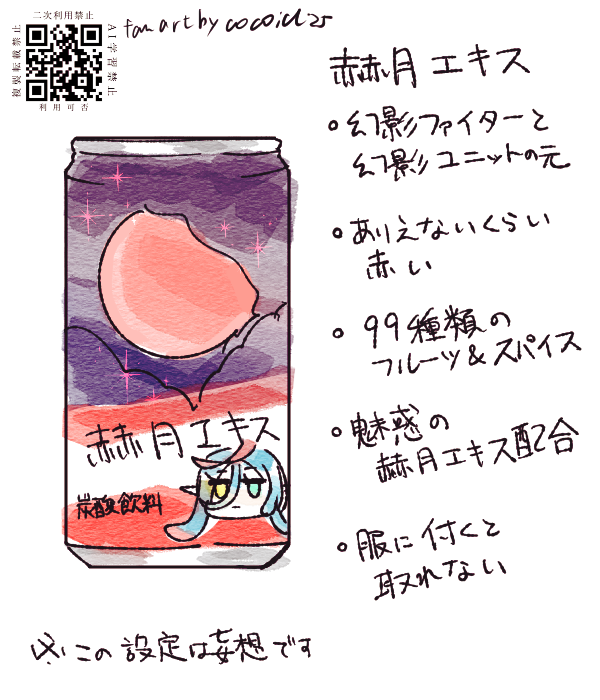 二次利用禁止
複製転載禁止
AI学習禁止
利用可否
fan art by cocoicl25
赫月エキス
○幻影ファイターと
幻影ユニットの元
○ありえないくらい
赤い
○99種類の
フルーツ&スパイス
○魅惑の
赫月エキス配合
○服に付くと
取れない
赫月エキス
炭酸飲料
※この設定は妄想です